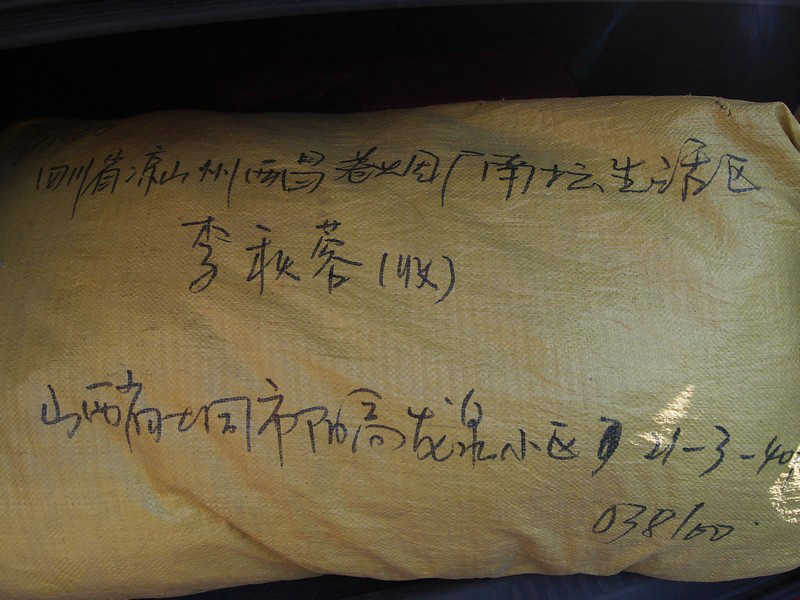 四川省凉山州西昌卷烟厂南坛生活区
李秋蓉(收)
山西省大同市阳高龙泉小区 21-3-40
038100